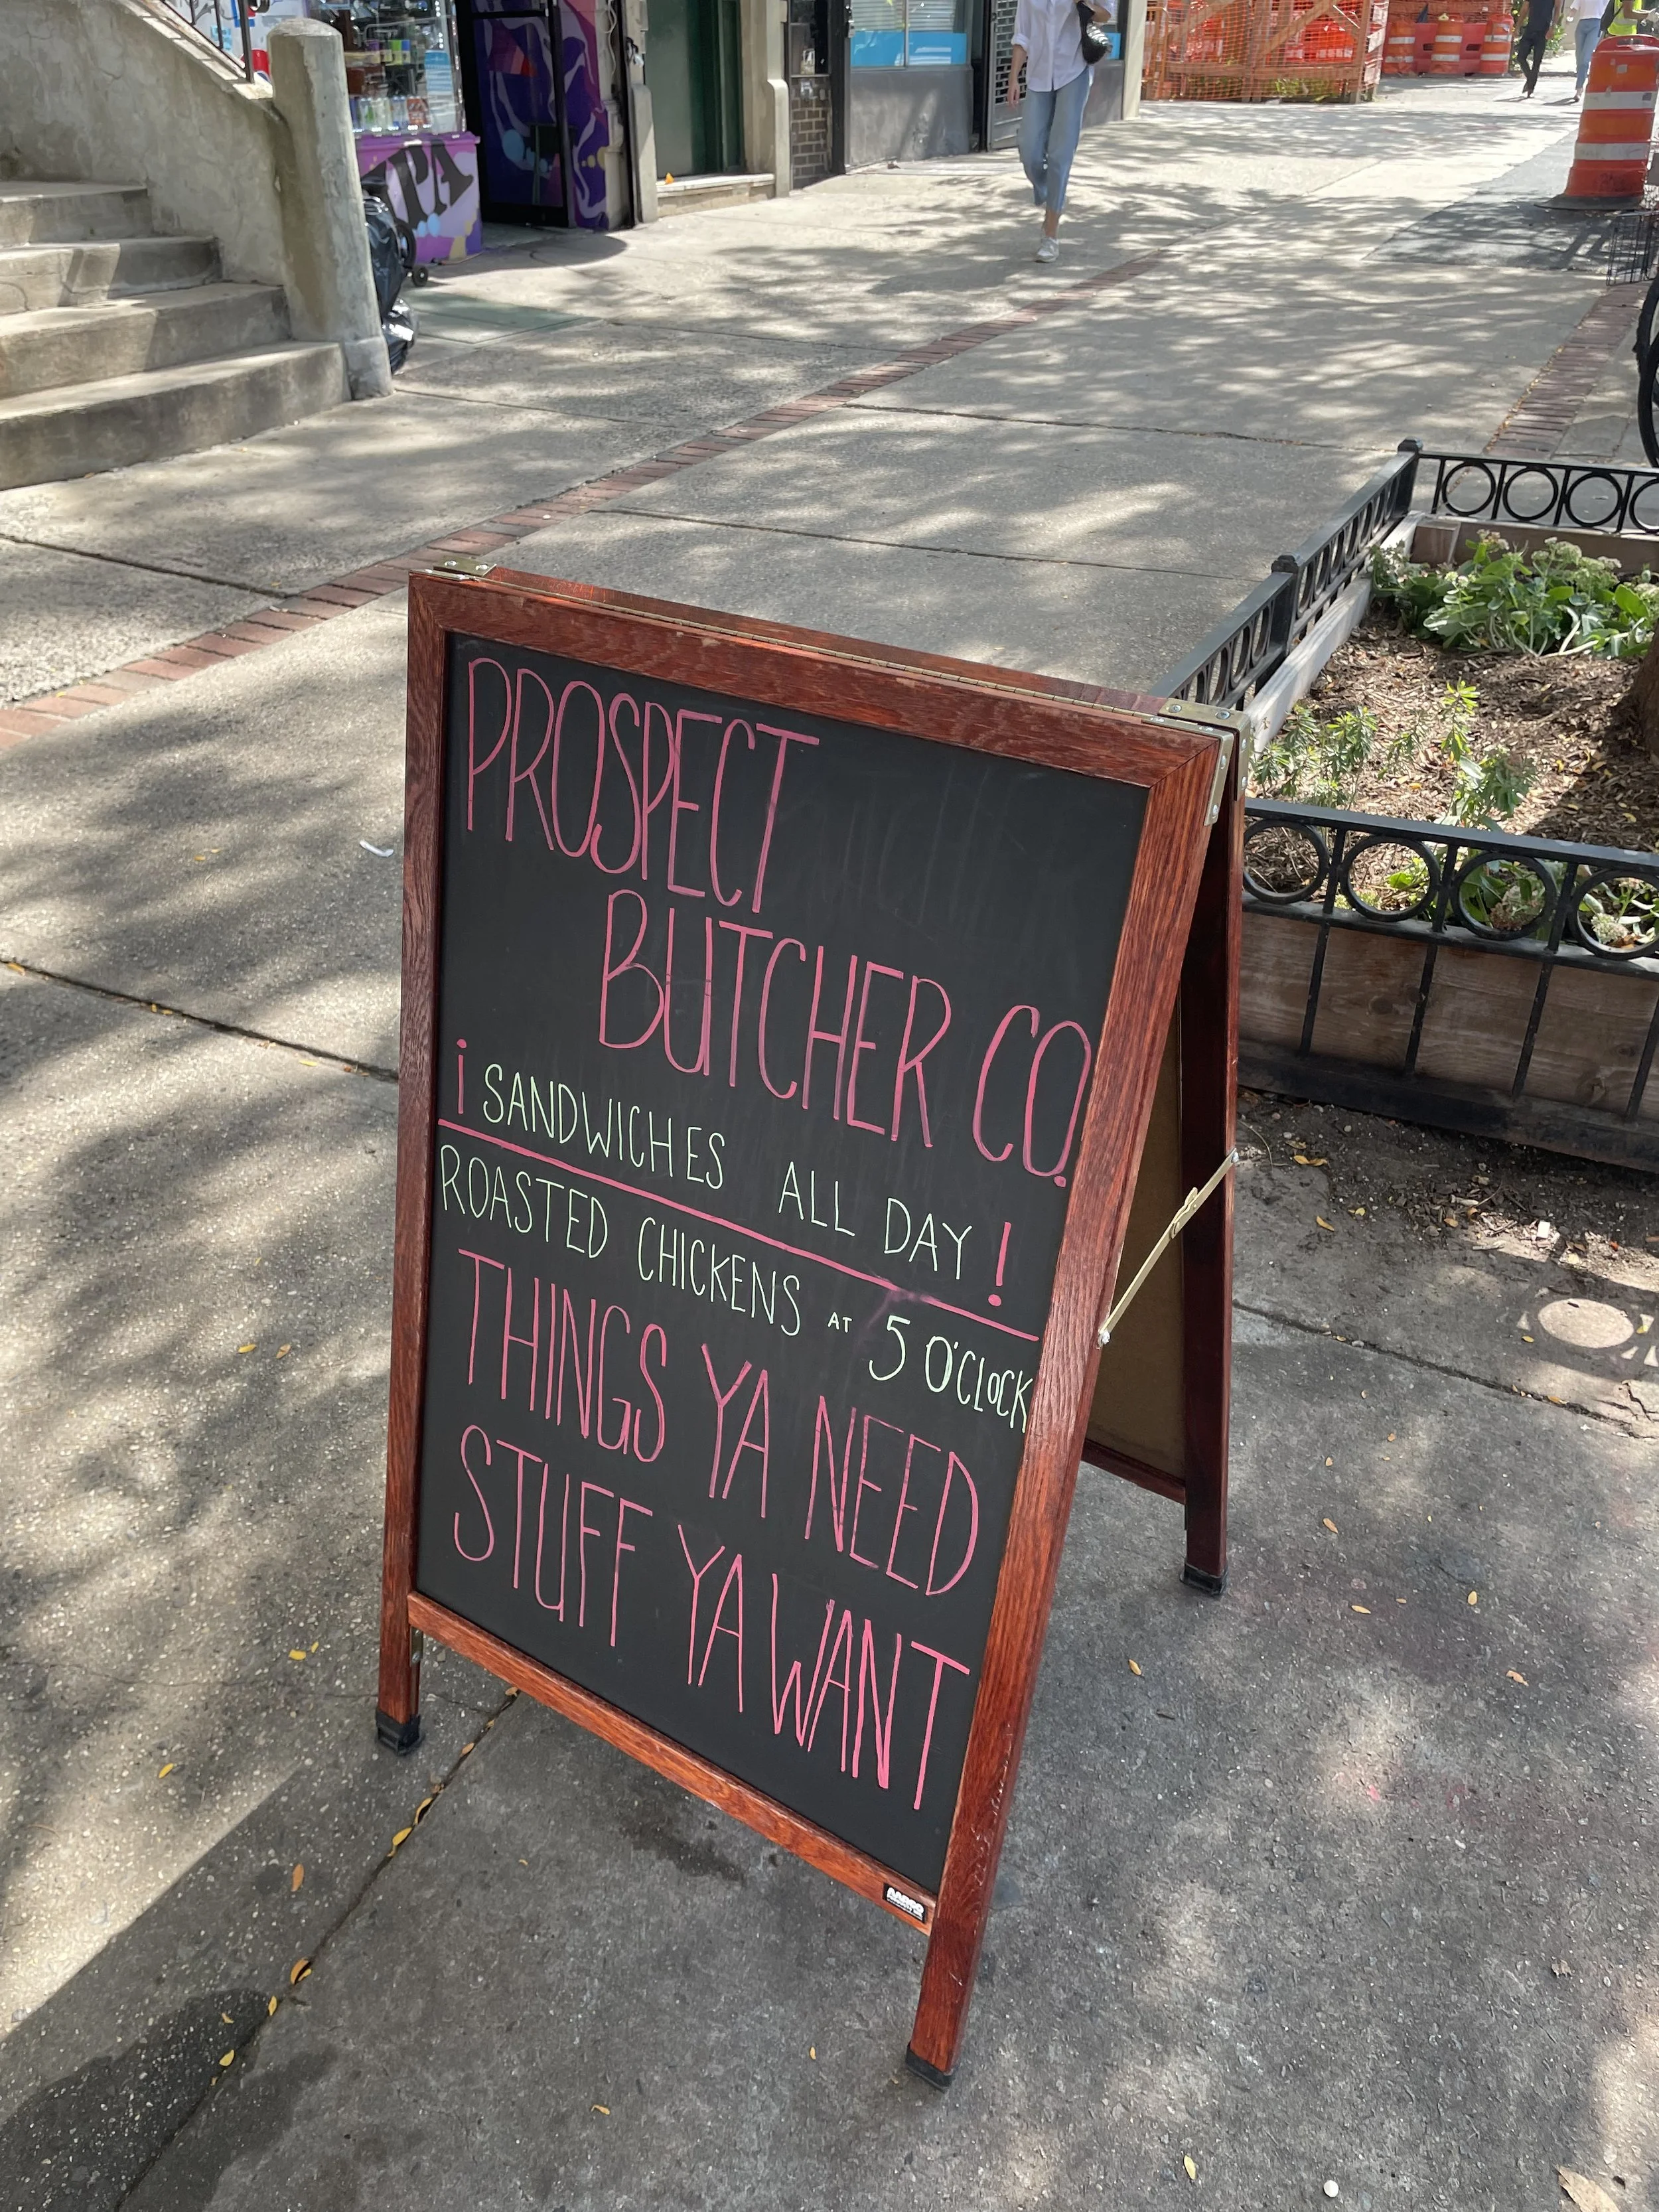 PROSPECT
BUTCHER CO.
¡SANDWICHES ALL DAY!
ROASTED CHICKENS AT 5 O'CLOCK
THINGS YA NEED
STUFF YA WANT